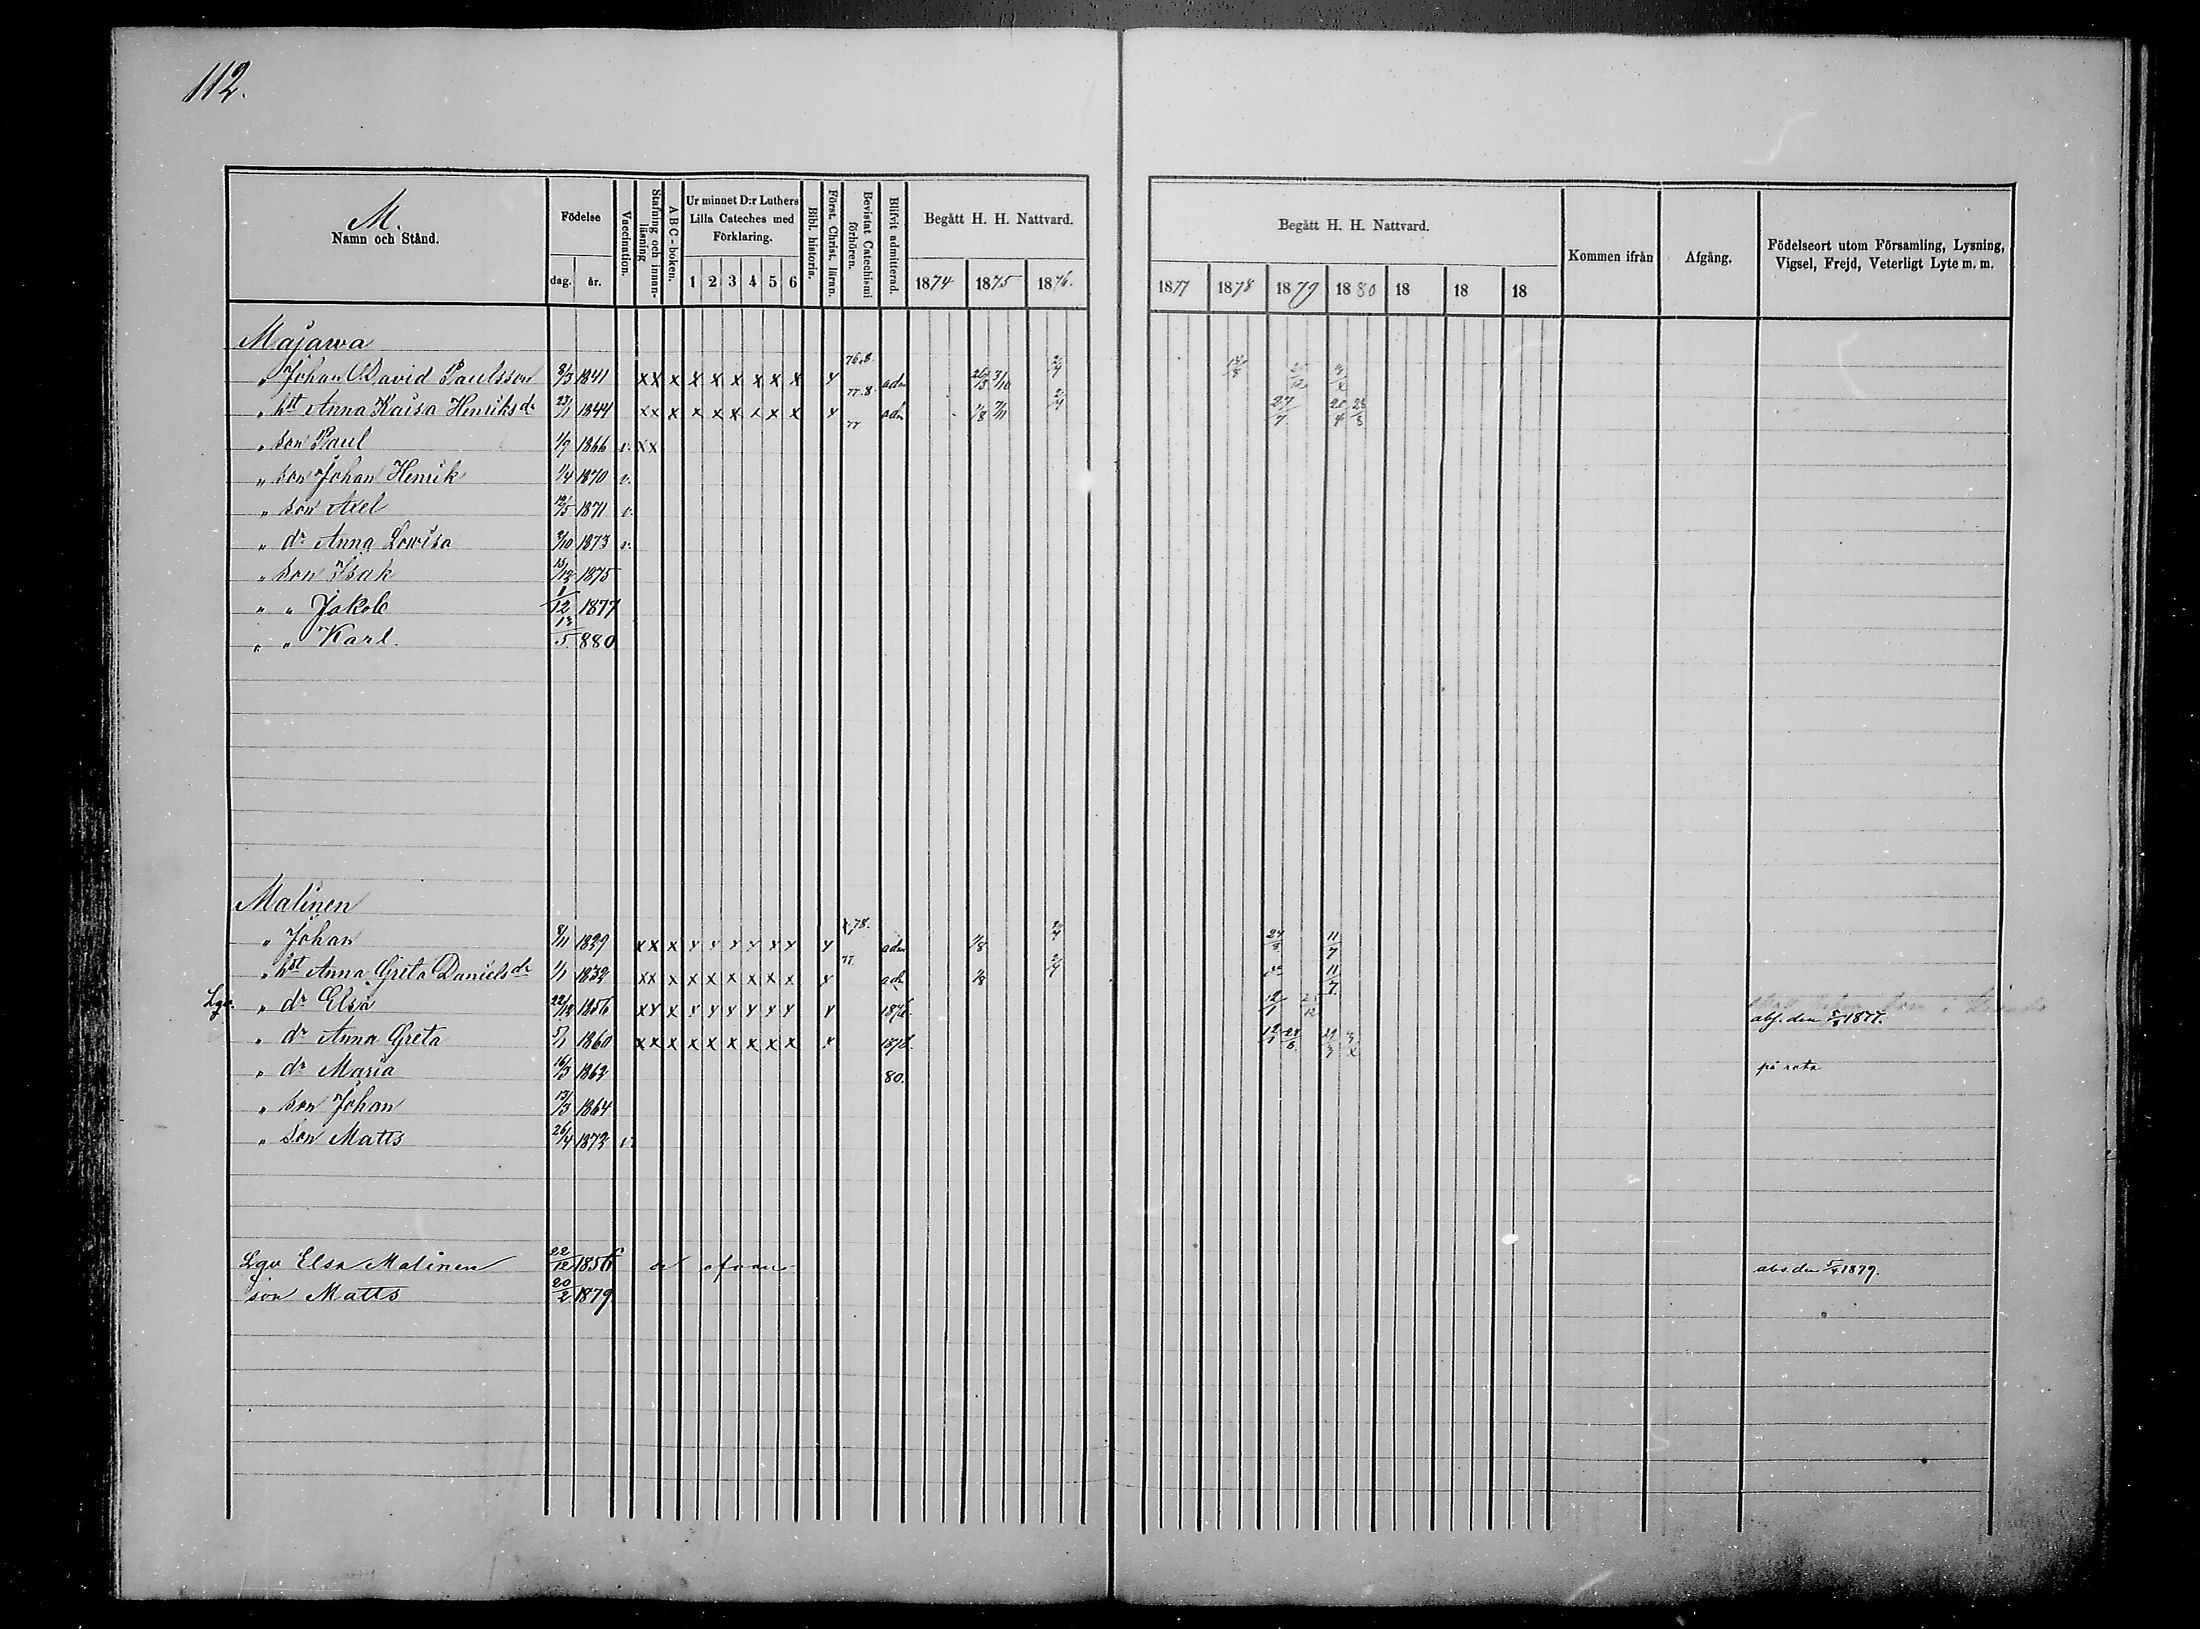 112.
M.
Namn och Stånd.
Födelse
dag. år.
Vaccination.
Stafning och innan-läsning
A B C-boken.
Ur minnet D:r Luthers Lilla Cateches med Förklaring.
1 2 3 4 5 6
Bibl. historia.
Först. Christ. läran.
Bevistat Catechismi förhören.
Blifvit admitterad.
Begått H. H. Nattvard.
1874 1875 1876.
Begått H. H. Nattvard.
1877 1878 1879 1880 18 18 18
Kommen ifrån
Afgång.
Födelseort utom Församling, Lysning, Vigsel, Frejd, Veterligt Lyte m. m.
Majawa
" Johan David Paulsson 8/3 1841 x x x x x x x x x x 76.8. adm 3/10 2/4
" hst Anna Kaisa Henriksdr 23/1 1844 x x x x x x x x x x 77.8. adm 1/8 7/11 2/4 27/7
" son Paul 1/9 1866 v. x x 77
" son Johan Henrik 1/4 1870 v.
" son Axel 12/5 1871 v.
" dr Anna Lowisa 2/10 1873 v.
" son Isak 15/12 1875
" " Jakob 1/12 1877
" " Karl. 13/5 880
Malinen
" Johan 8/11 1829 x x x x x x x x x x 78. adm 1/8 2/4 24/8 11/7
" hst Anna Greta Danielsdr 1/1 1832 x x x x x x x x x x 77 adm 1/8 2/4 11/7.
Lqv. " dr Elsa 22/12 1856 x x x x x x x x x x 1876. abs. den 5/8 1877.
" dr Anna Greta 5/1 1860 x x x x x x x x x x 1878.
" dr Maria 16/3 1862 80. på rota
" son Johan 13/3 1864
" son Matts 26/4 1872 v.
Lqv Elsa Malinen 22/12 1856 se ofvan abs. den 5/4 1879.
son Matts 20/2 1879